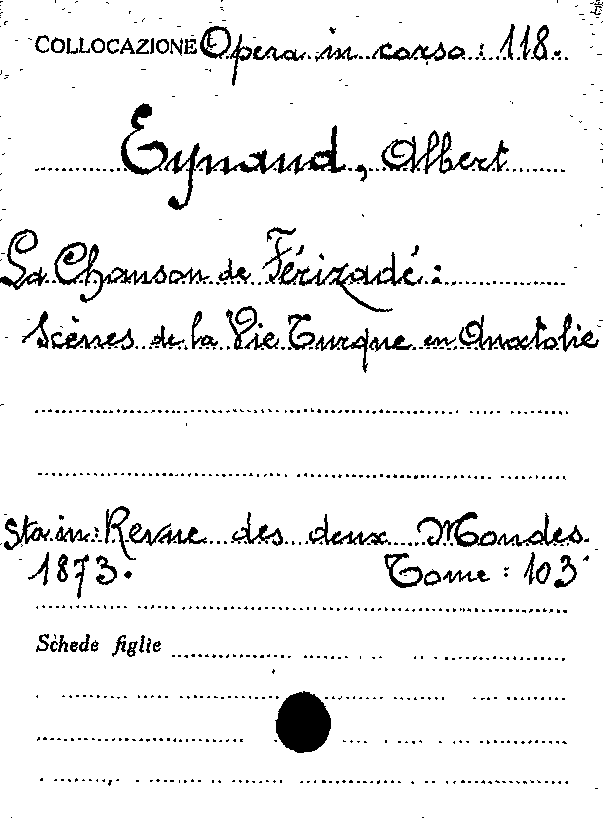 COLLOCAZIONE Opera in corso: 118.
Eynaud, Albert
La Chanson de Férizadé:
Scènes de la Vie Turque en Anatolie
Sta in: Revue des deux Mondes.
1873. Tome: 103
Schede figlie